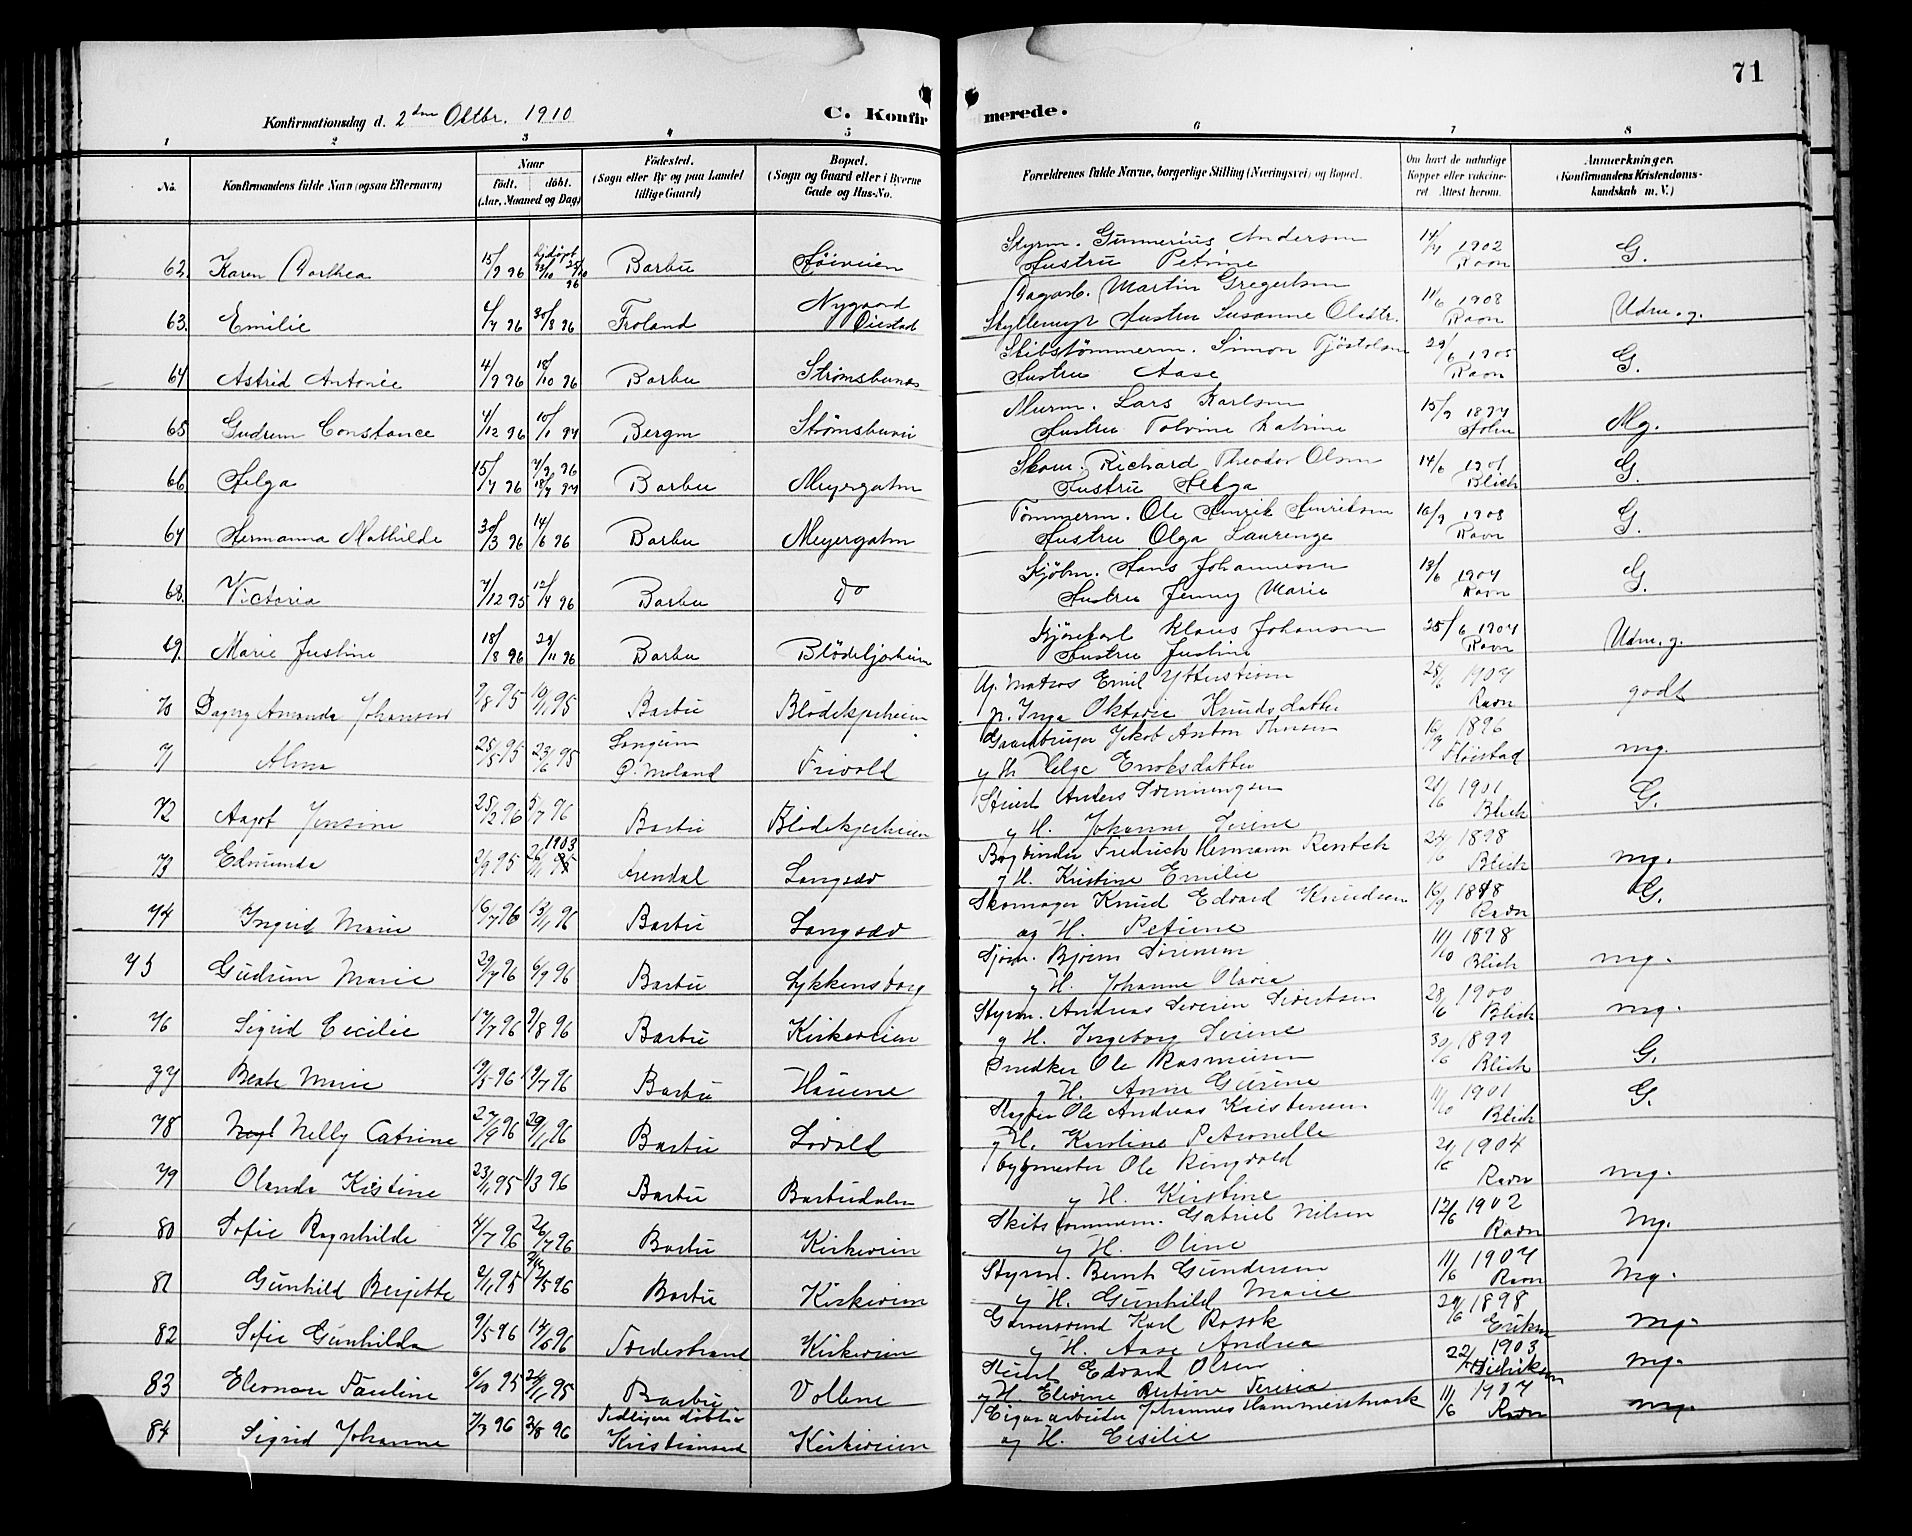 71
Konfirmationsdag d. 2den Oktbr. 1910 C. Konfirmerede.
1 2 3 4 5 6 7 8
No. Konfirmandens fulde Navn (ogsaa Efternavn) Naar født. døbt. (Aar, Maaned og Dag) Fødested. (Sogn eller By og paa Landet tillige Gaard) Bopæl. (Sogn og Gaard eller i Byerne Gade og Hus-No. Forældrenes fulde Navne, borgerlige Stilling (Næringsvei) og Bopæl. Om havt de naturlige Kopper eller vaccineret. Attest herom. Anmærkninger. (Konfirmandens Kristendomskundskab m. V.)
62. Karen Dorthea 15/9 96 Barbu Styrm. Gunnerius Andersen Hustru Petrine 14/7 1902 Ravn G.
63. Emilie 4/7 96 30/8 96 Froland Nygaard Øiestad Dagarb. Martin Gregertsen Hustru Susanne Olsdtr. 11/6 1908 Ravn Udm. g.
64 Astrid Antonie 4/9 96 18/10 96 Barbu Strømsbunes Skibstømmerm. Simon Tjøstolsen Hustru Aase 29/6 1905 Ravn G.
65 Gudrun Constance 4/12 96 10/1 97 Bergen Strømsbuvei Murm. Lars Karlsen Hustru Tolvine Katrine 15/9 1897 Mg.
66 Helga 15/7 96 Barbu Meyergaten Skom. Richard Theodor Olsen Hustru Helga 14/6 1901 Blich G.
67 Hermanna Mathilde 30/3 96 14/6 96 Barbu Meyergaten Tømmerm. Ole Henrik Henriksen Hustru Olga Laurenze 16/9 1908 Ravn G.
68. Victoria 7/12 95 12/4 96 Barbu do Kjøbm. Hans Johannesen Hustru Jenny Marie 18/6 1907 Ravn G.
69. Marie Justine 18/8 96 29/11 96 Barbu Blødekjærheien Kjørekarl Klaus Johansen Hustru Justine 25/6 1907 Ravn Udm. g.
70 Dagny Amanda Johansen 9/8 95 10/11 95 Barbu Blødekjerheien Matros Emil Ytterstrøm p. Inga Oktavie Knudsdatter 25/6 1907 Ravn godt
71 Alma 25/5 95 23/6 95 Langeim Ø. Moland Frivold Gaardbruger Jakob Anton Thorsen og H. Helge Eriksdatter 16/9 1896 Fløistad mg.
72 Aagot Jensine 25/2 96 5/7 96 Barbu Blødekjerheien Stuert Anders Svenningsen og H. Johanne Serine 21/6 1901 Blich G.
73 Edmunda 2/9 95 1903 Arendal Langsæv Bogbinder Fredrich Hermann Rentsch og H. Kristine Emilie 24/6 1898 Blich mg.
74 Ingrid Marie 16/7 96 13/11 96 Barbu Langsæv Skomager Knud Edvard Knudsen og H. Petrine 16/9 1898 Ravn G.
75 Gudrun Marie 29/7 96 6/9 96 Barbu Lykkensborg Sjøm. Bjørn Sørensen og H. Johanne Olavia 11/10 1898 Blich mg.
76 Sigrid Cecilie 17/7 96 9/8 96 Barbu Kirkeveien Styrm. Andreas Severin Sivertsen og H. Ingeborg Serine 28/6 1900 Blich mg.
77 Beate Marie 19/5 96 19/7 96 Barbu Hauene Snedker Ole Rasmussen og H. Anne Gurine 30/6 1899 Blich G.
78 Nelly Catrine 27/9 96 29/11 96 Barbu Løvold Slagter Ole Andreas Kristensen og H. Karoline Petronelle 11/10 1901 Blich G.
79 Olanda Kristine 23/11 95 1/3 96 Barbu Barbudalen Bygmester Ole Ringvold og H. Kirstine 21/6 1904 Ravn mg.
80 Sofie Ragnhilde 4/7 96 26/7 96 Barbu Kirkeveien Skibstømmerm. Gabriel Nilsen og H. Oline 12/6 1902 Ravn Mg.
81 Gunhild Birgitte 2/11 95 Barbu Kirkeveien Styrm. Bernt Gundersen og H. Gunhild Marie 11/6 1907 Ravn Mg.
82 Sofie Gunhilda 9/5 96 14/6 96 Tvedestrand Kirkeveien Karl Rosok og H. Aase Andrea 29/6 1898 Eriksen Mg.
83 Eleonore Pauline 6/10 95 24/11 95 Barbu Vollene Stuert Edvard Olsen og H. Elevine Bertine Teresia 22/ 1903 Didriksen mg.
84 Sigrid Johanne 7/3 96 2/8 96 Kristiansand Kirkeveien Cigararbeider Johannes Hammersmark og H. Cicilie 11/6 1907 Ravn mg.